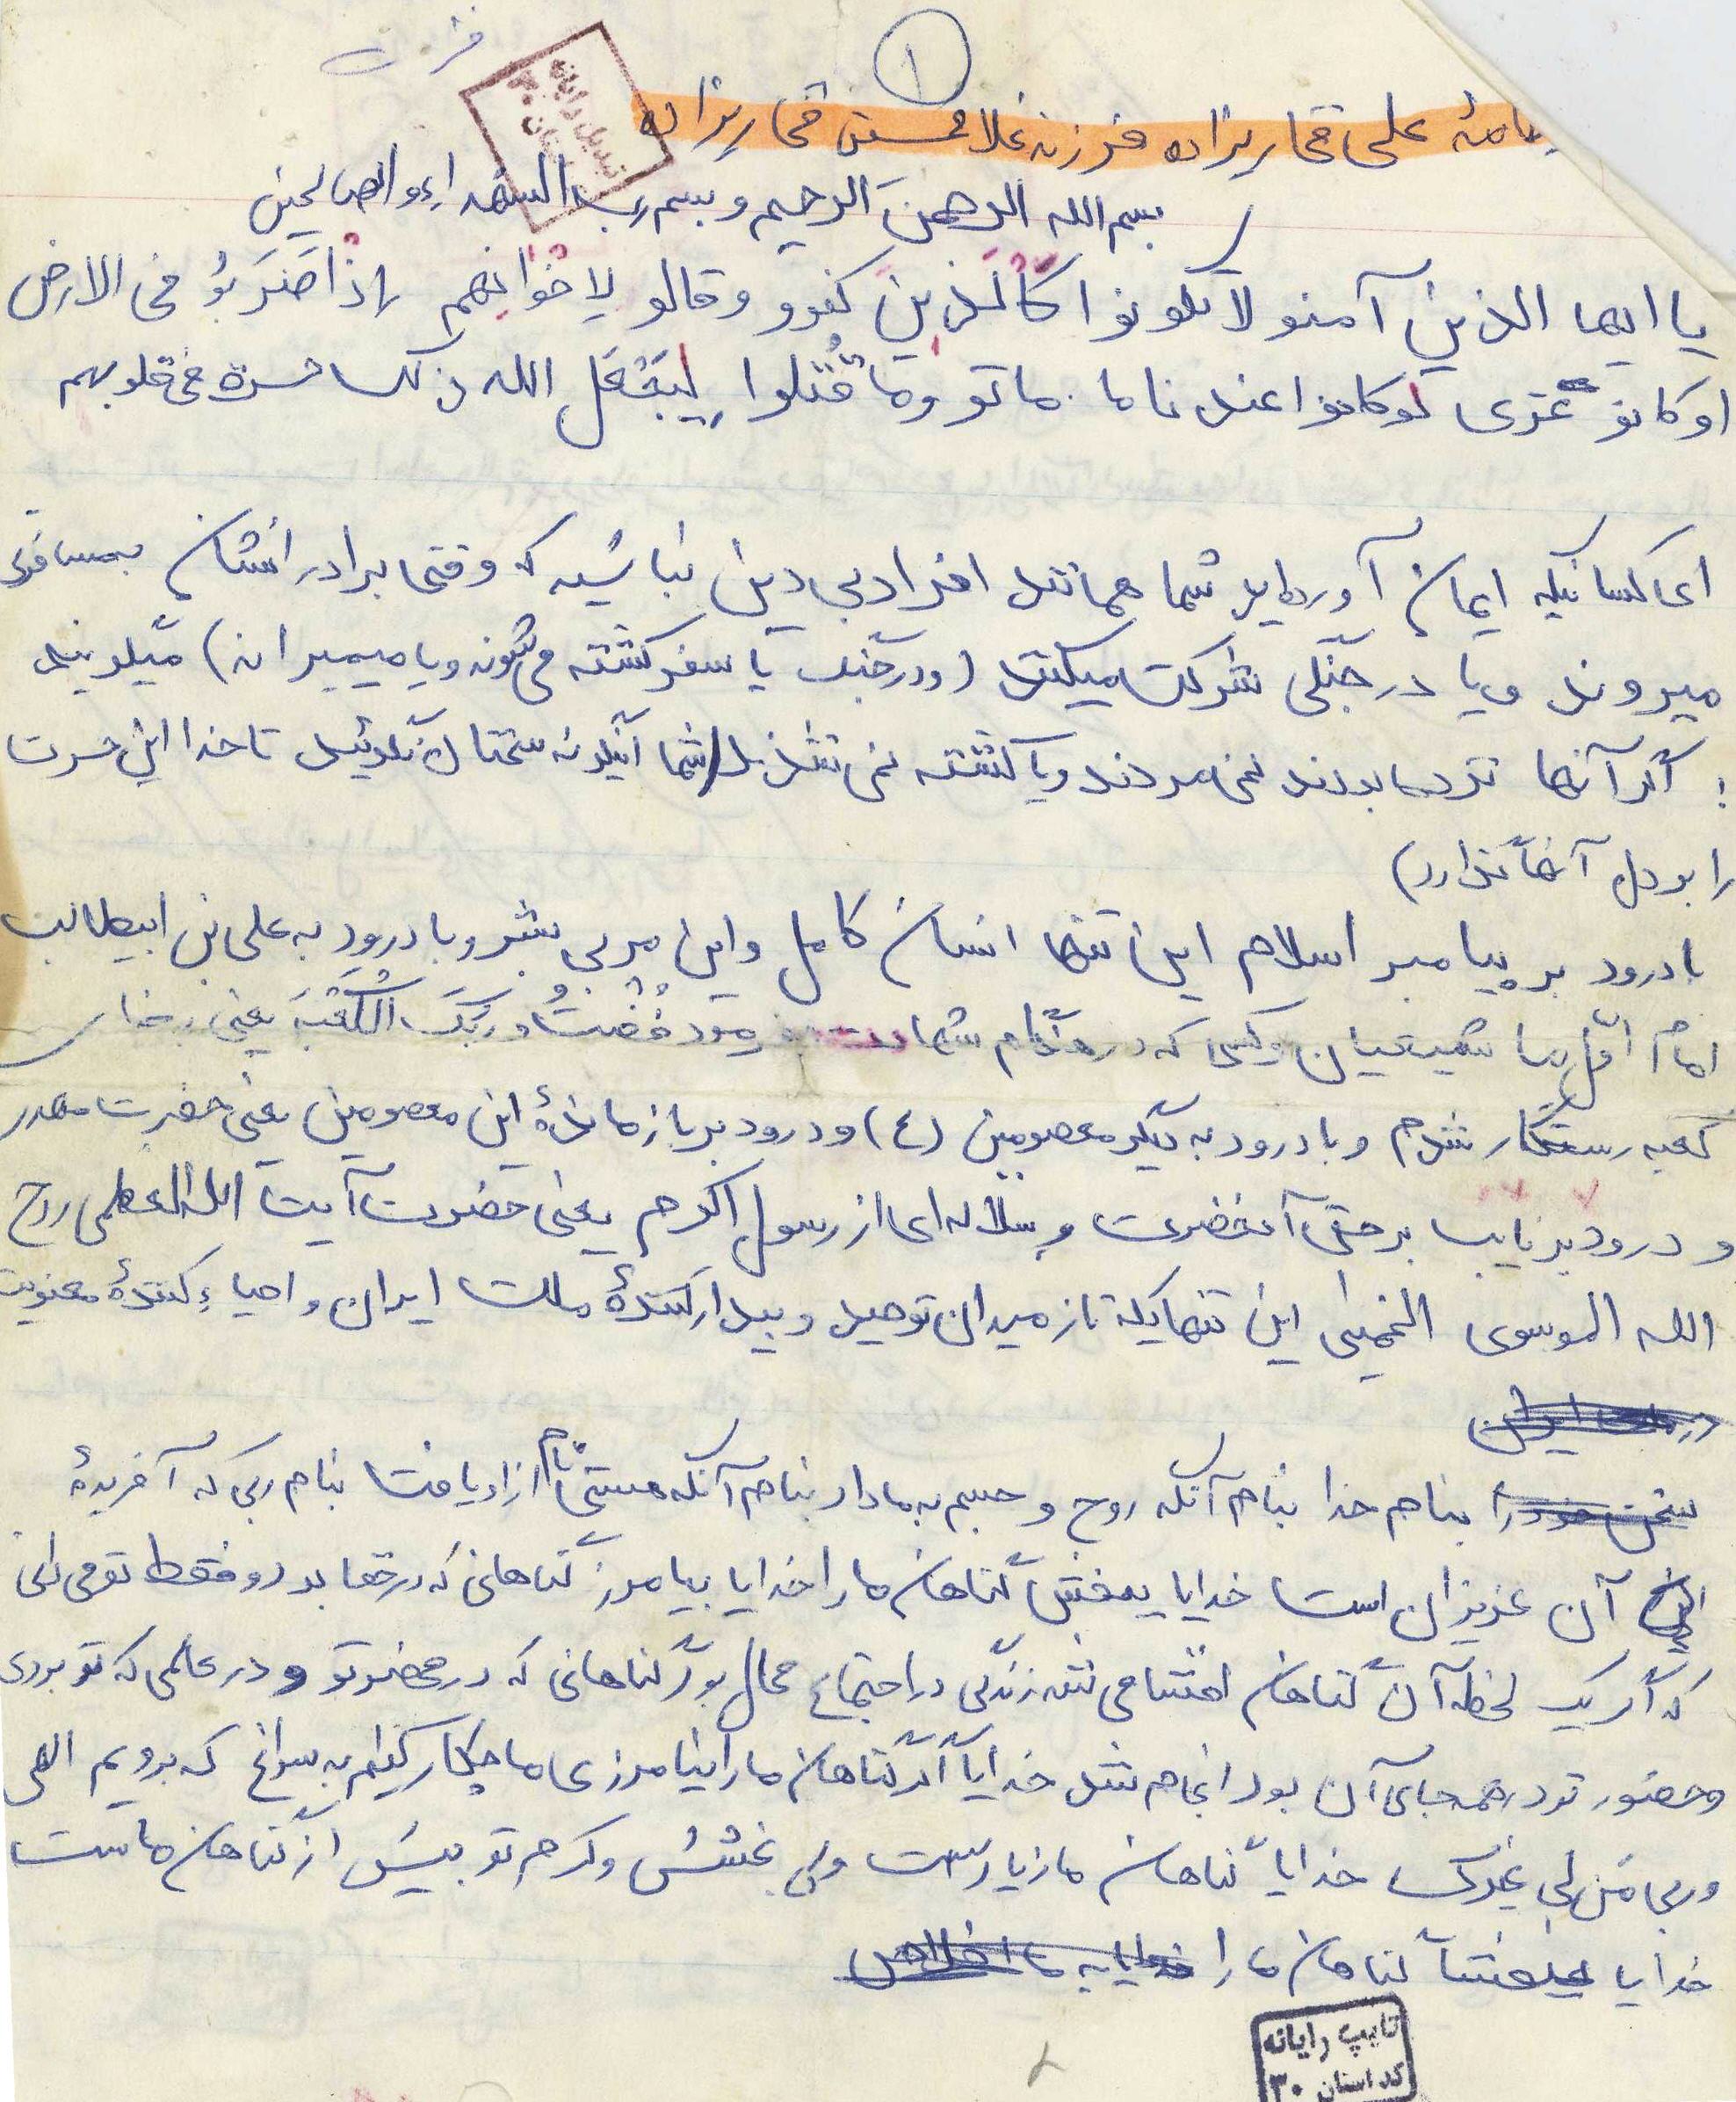 ۱
علی قحاریزاده فرزند غلامحسین قحاریزاده
بسم الله الرحمن الرحیم و بسم رب الشهداء و الصالحین
یا ایها الذین آمنو لا تکونوا کالذین کفرو و قالو لاِخوانِهم اِذا ضَرَبوُ فی الارض
او کانو غزی لو کانوا عندنا ما ماتو و ما قُتلوا لِیَجعَل الله ذلک حسرة فی قلوبهم
ای کسانیکه ایمان آورده‌اید شما همانند افراد بی دین نباشید که وقتی برادرانشان بمسافرت
میروند و یا در جنگی شرکت میکنند (و در جنگ یا سفر کشته می‌شوند و یا میمیراند) میگویند
: اگر آنها نزد ما بودند نمی‌مردند و یا کشته نمی‌شدند/شما اینگونه سخنان نگوئید تا خدا این حسرت
را بر دل آنها گذارد)
با درود بر پیامبر اسلام این تنها انسان کامل و این مربی بشر و با درود به علی بن ابیطالب
امام اوّل ما شیعیان و کسی که در هنگام شهادت فرمود فُضتُ وَ رَبَکَ الکَعْبَه یعنی بخدای
کعبه رستگار شدم و با درود به دیگر معصومین (ع) و درود بر بازماندهٔ این معصومین یعنی حضرت مهدی
و درود بر نایب بر حق آنحضرت و سلاله‌ای از رسول اکرم یعنی حضرت آیت الله العظمی روح
الله الموسوی الخمینی این تنها یکه تاز میدان توحید و بیدارکنندهٔ ملت ایران و احیاءِ کنندهٔ معنویت
در ایران
سخن خود را بنام خدا بنام آنکه روح و جسم به ما داد بنام آنکه هستی نام از او یافت بنام ربی که آفریدهٔ
این آن عزیزان است خدایا ببخش گناهان ما را خدایا بیامرز گناهانی که در خفا بود و فقط تو می‌دانی
که اگر یک لحظه آن گناهان افشا می‌شد زندگی در اجتماع محال بود گناهانی که در محضر تو و در علمی که تو بودی
و حضور تو در همه جای آن بود انجام شد خدایا اگر گناهان ما را نیامرزی ما چکار کنیم به سراغ که برویم الهی
و ربی مَن لی غیرک خدایا گناهان ما زیاد است ولی بخشش و کرم تو بیش از گناهان ماست
خدایا ببخش گناهان ما را خدایا به ما اخلاص
تایپ رایانه
کد استان ۳۰